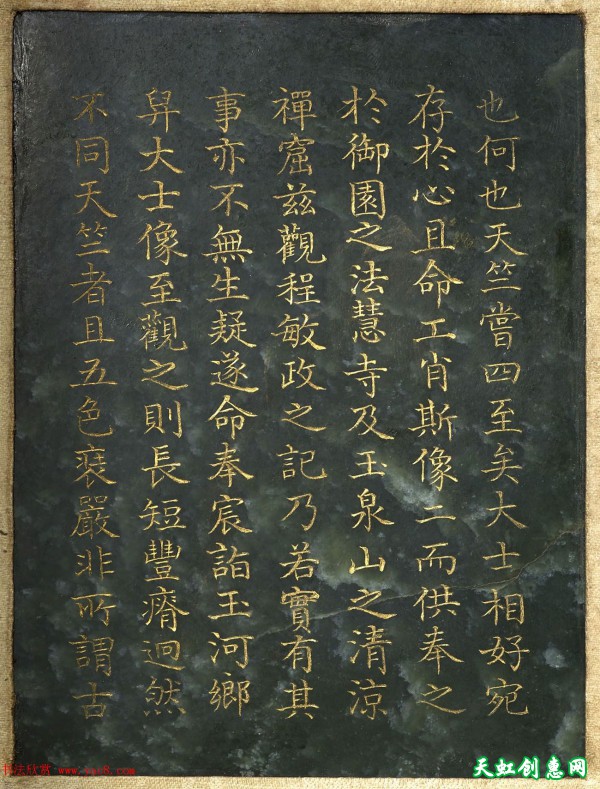 也何也天竺嘗四至矣大士相好宛
存於心且命工肖斯像二而供奉之
於御園之法慧寺及玉泉山之清涼
禪窟茲觀程敏政之記乃若實有其
事亦不無生疑遂命奉宸詣玉河鄉
舁大士像至觀之則長短豐瘠迥然
不同天竺者且五色裝嚴非所謂古
书法欣赏
天虹创惠网